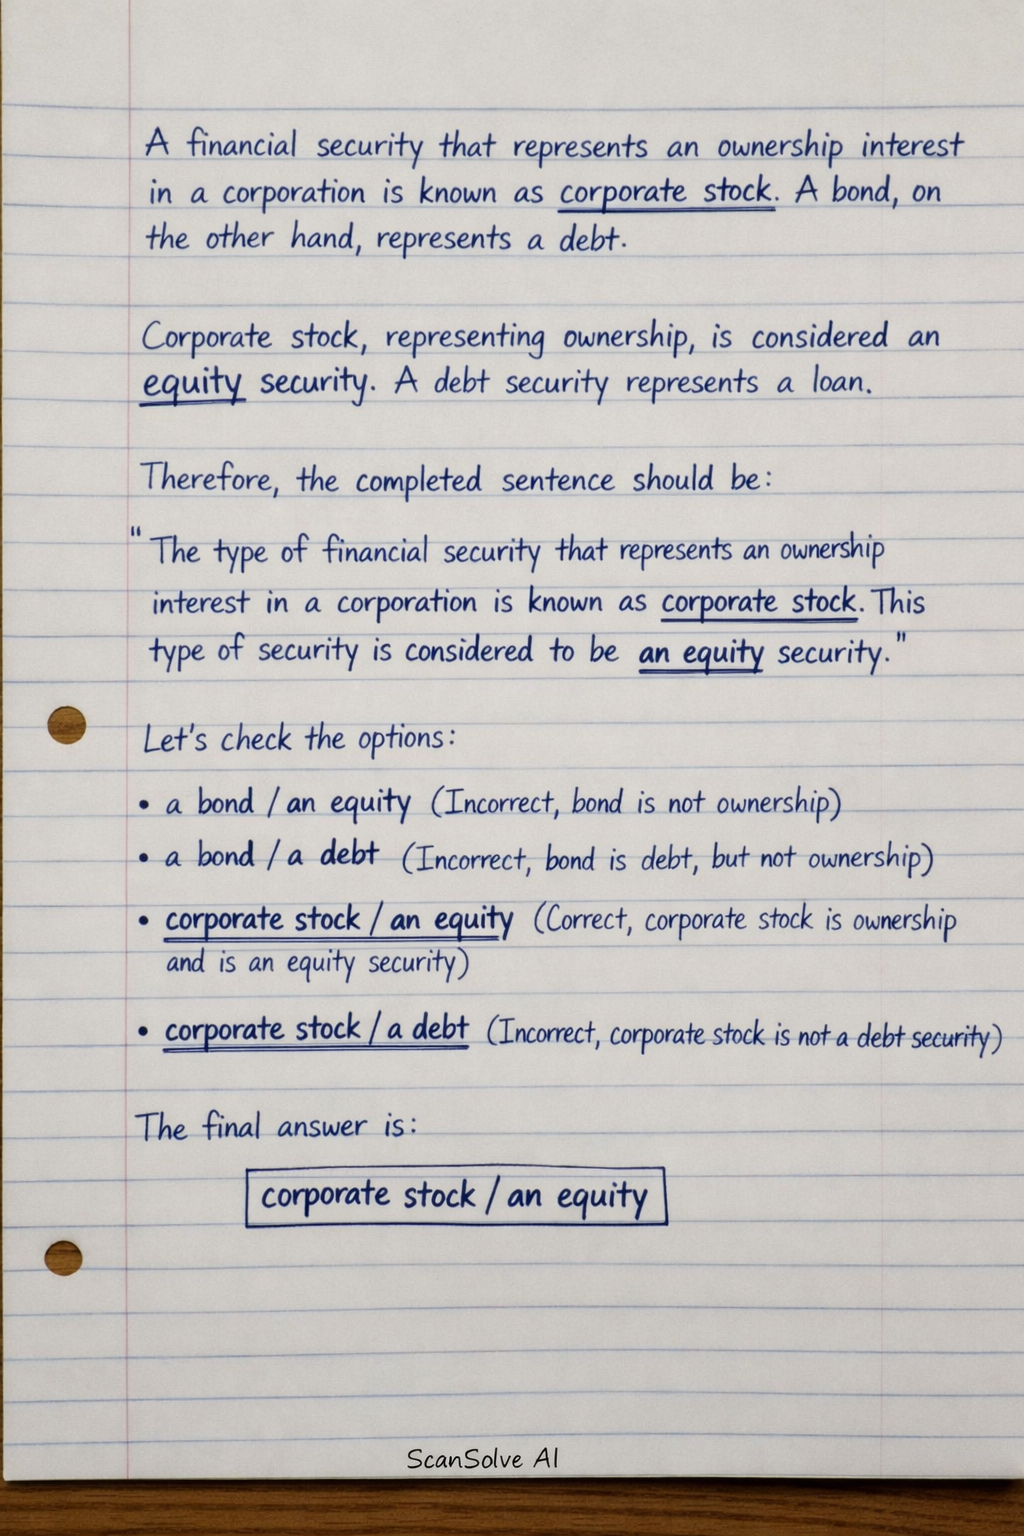 A financial security that represents an ownership interest
in a corporation is known as corporate stock. A bond, on
the other hand, represents a debt.
Corporate stock, representing ownership, is considered an
equity security. A debt security represents a loan.
Therefore, the completed sentence should be:
"The type of financial security that represents an ownership
interest in a corporation is known as corporate stock. This
type of security is considered to be an equity security."
Let's check the options:
• a bond / an equity (Incorrect, bond is not ownership)
• a bond / a debt (Incorrect, bond is debt, but not ownership)
• corporate stock / an equity (Correct, corporate stock is ownership
and is an equity security)
• corporate stock / a debt (Incorrect, corporate stock is not a debt security)
The final answer is:
corporate stock / an equity
ScanSolve AI